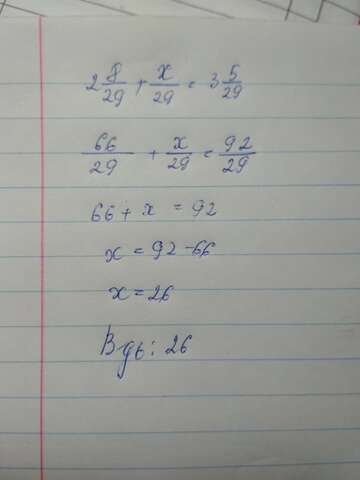 2 8/29 + x/29 = 3 5/29
66/29 + x/29 = 92/29
66 + x = 92
x = 92 - 66
x = 26
Вдь: 26